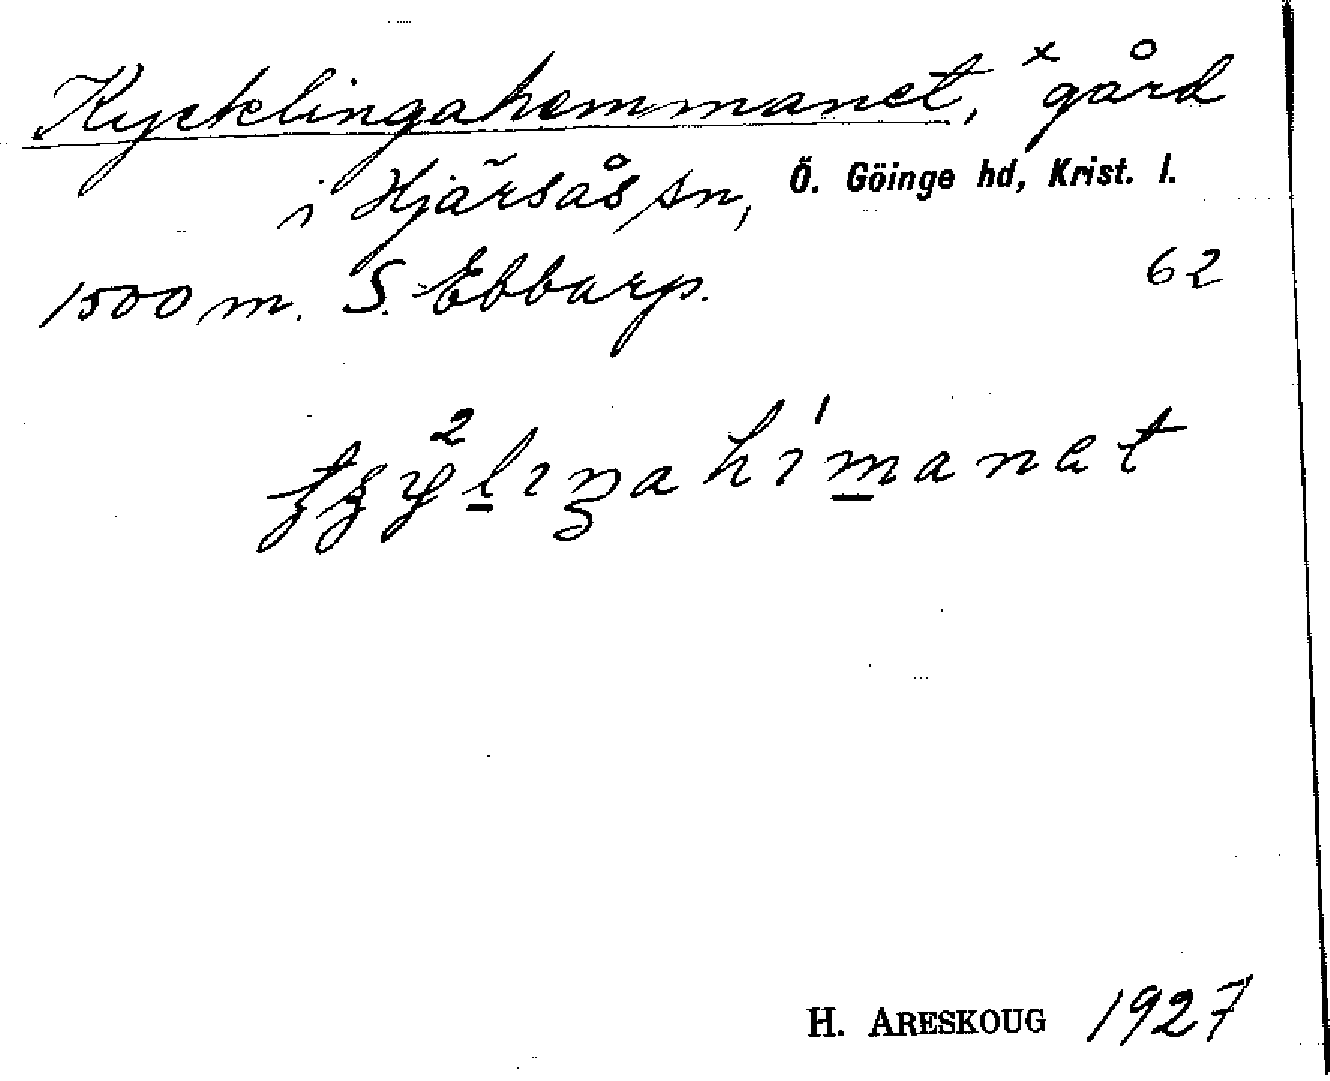 Kycklingahemmanet, × gård
i Hjärsås sn, Ö. Göinge hd, Krist. l.
1500 m. S. Ebbarp. 62
H. ARESKOUG 1927